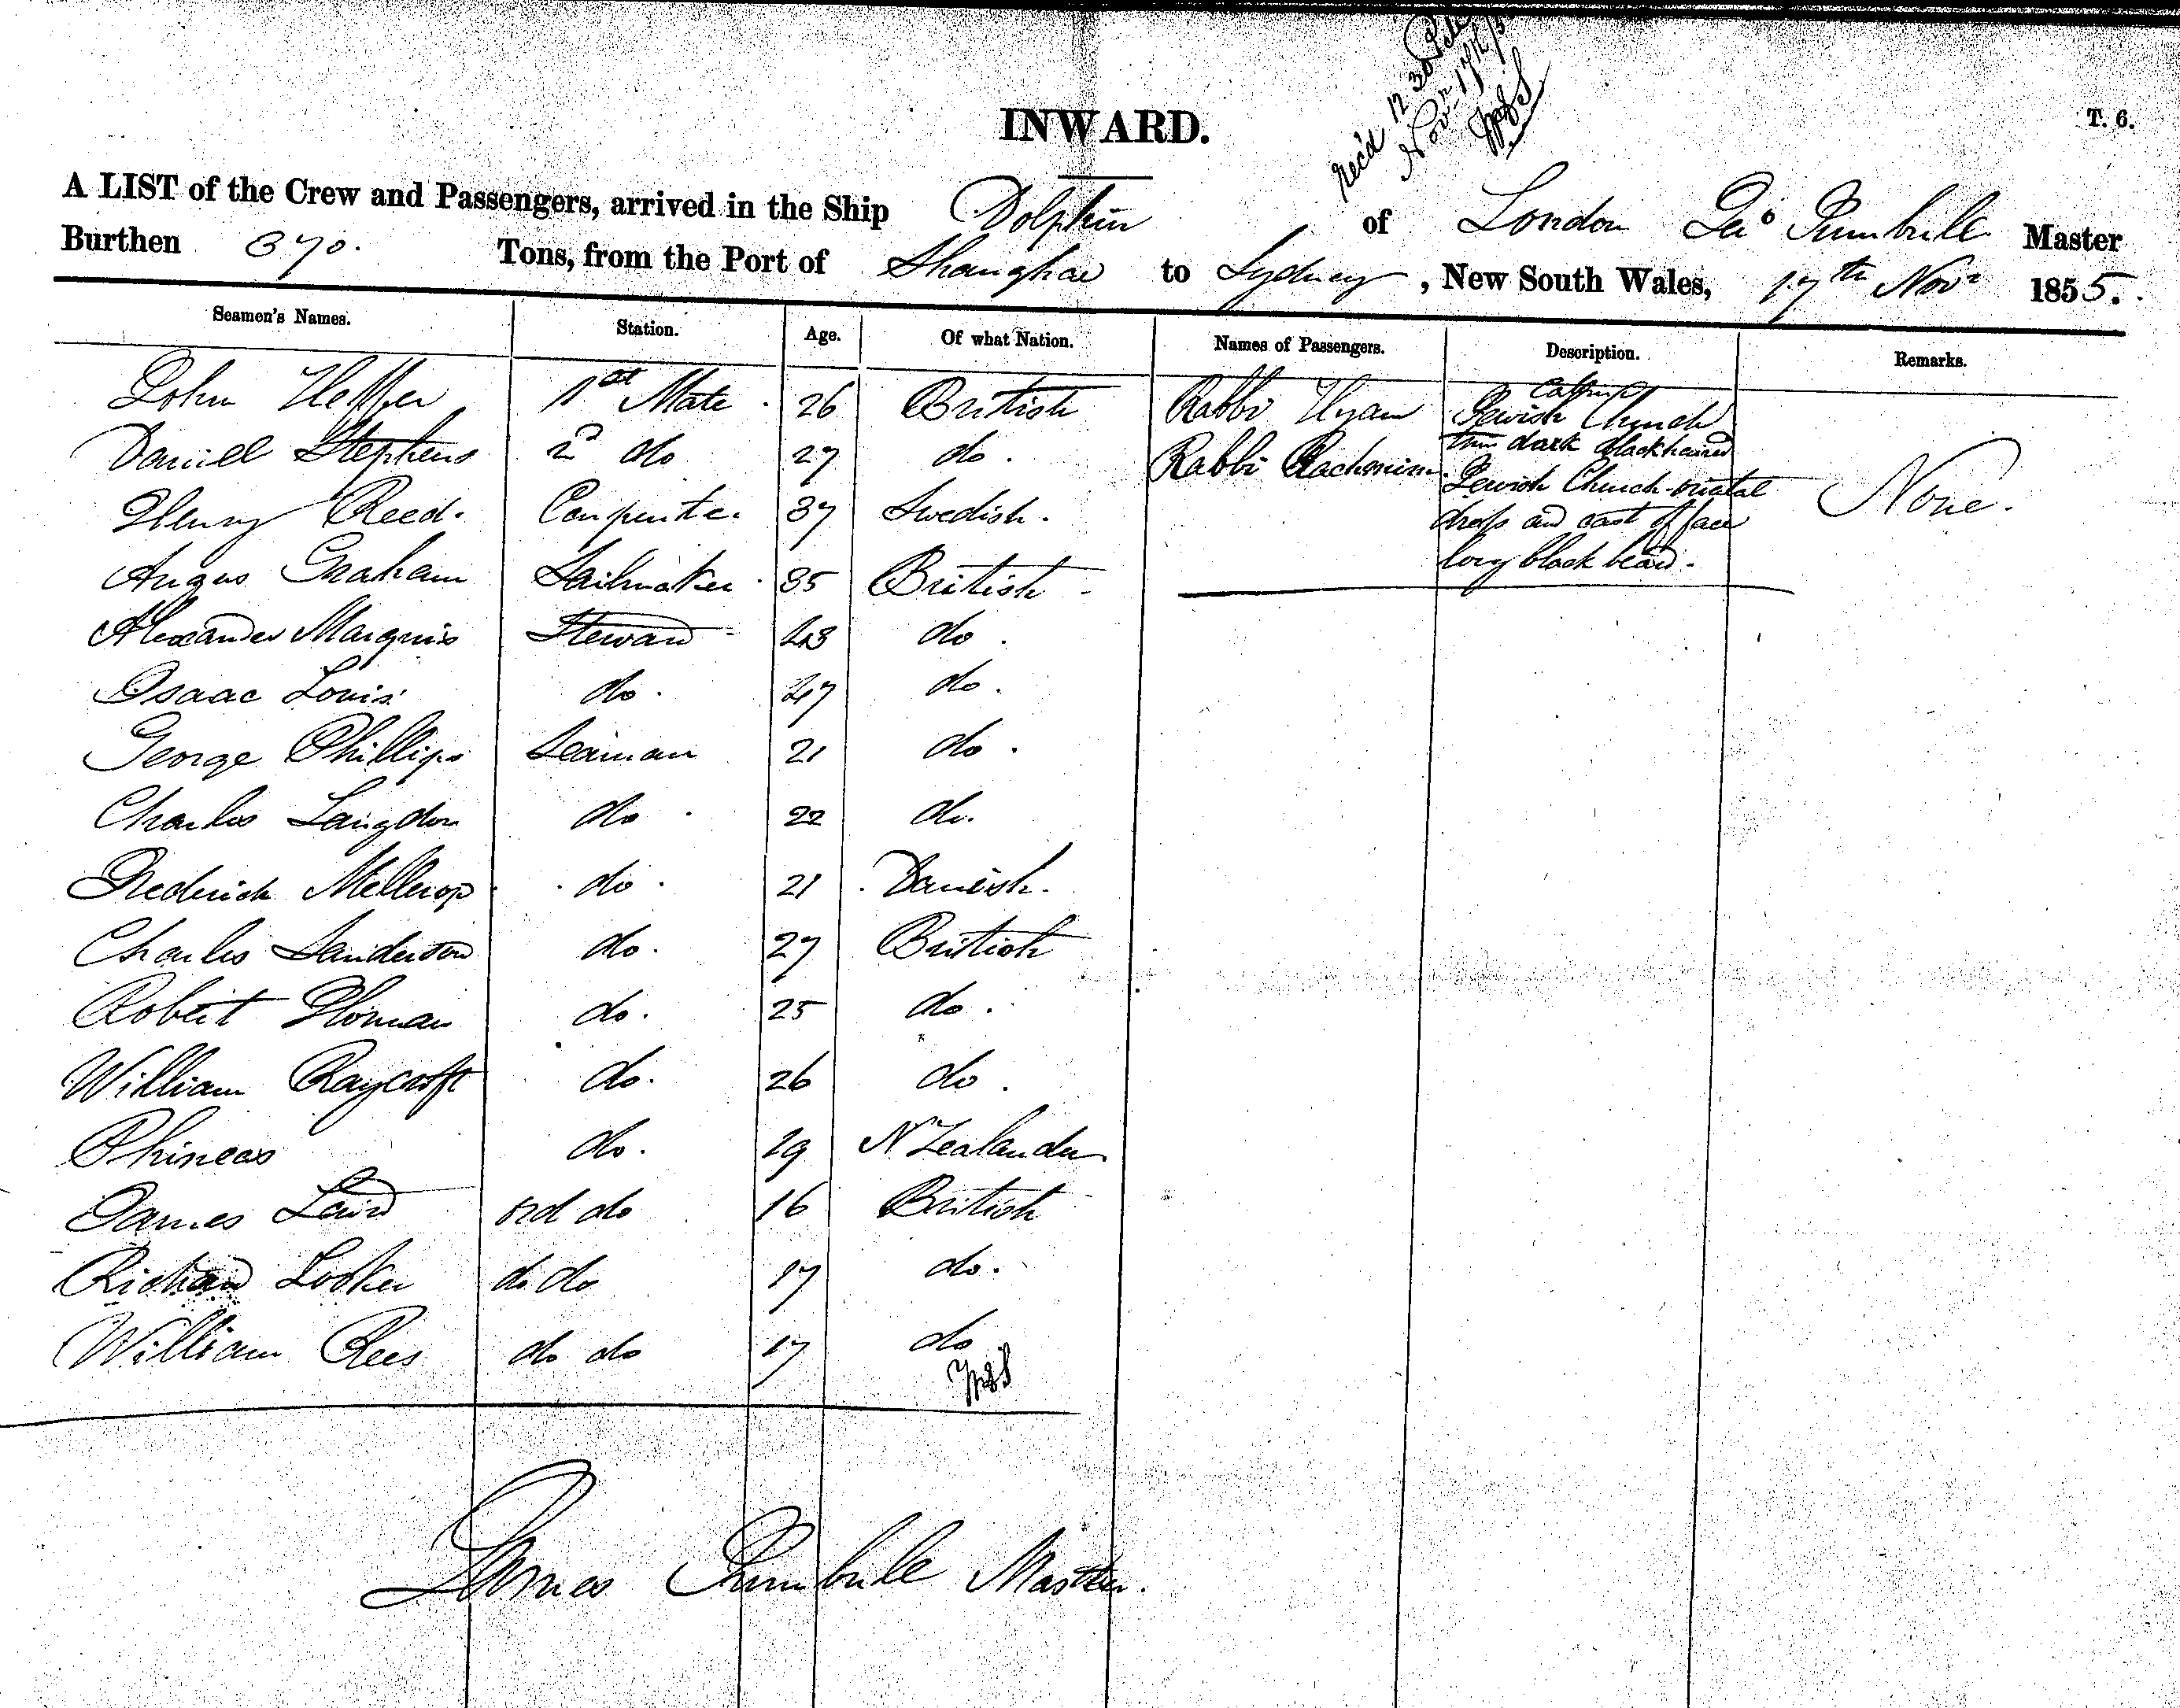 INWARD.
T. 6.
Rec'd 12 30
Nov 17/11/5
A LIST of the Crew and Passengers, arrived in the Ship Dolphin of London Jas Turnbull Master
Burthen 370. Tons, from the Port of Shanghae to Sydney, New South Wales, 17th Novr 1855.
Seamen's Names. Station. Age. Of what Nation. Names of Passengers. Description. Remarks.
John 1st Mate. 26 British Rabbi Hyam Jewish Church
thin dark black haired
Daniell Stephens 2d do 27 do. Rabbi Jewish Church
None.
Henry Reed. Carpenter. 37 Swedish. dress and cast of face
Angus Graham Sailmaker. 35 British long black beard.
Alexander Marquis Steward 43 do.
Isaac Louis do. 47 do.
George Phillips Seaman 21 do.
Charles Langdon do. 22 do.
Frederick Mellerop do. 21 Danish.
Charles Sanderson do. 27 British
Robert Homan do. 25 do.
William Raycroft do. 26 do.
Phineas do. 29 N Zealander
James Laird ord do 16 British
Richard Looker do do 17 do.
William Rees do do 17 do
James Turnbull Master.